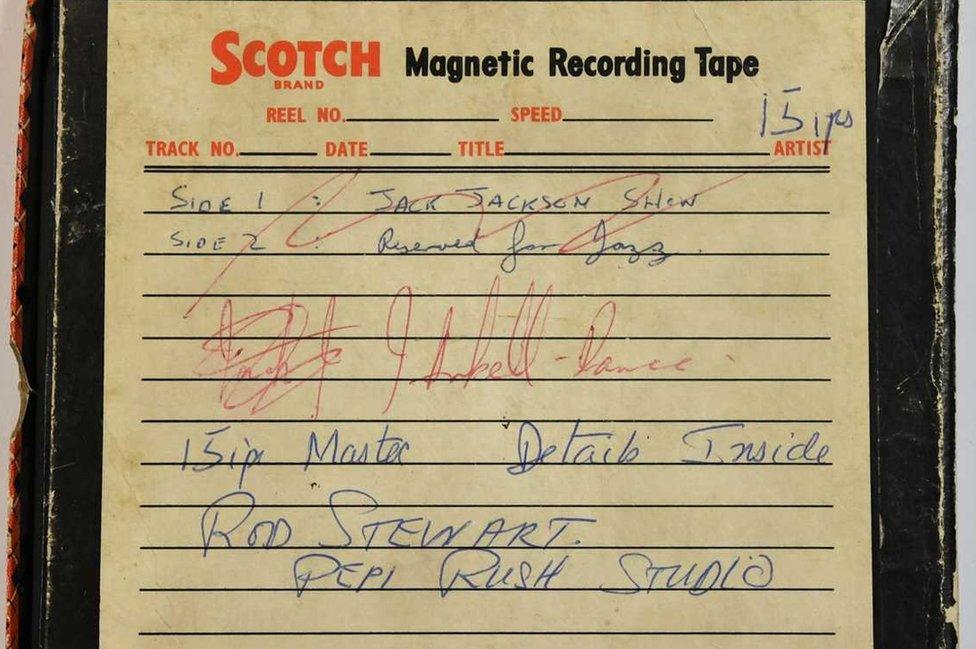 SCOTCH Magnetic Recording Tape
BRAND
REEL NO. SPEED 15ips
TRACK NO. DATE TITLE ARTIST
SIDE 1 : JACK JACKSON SHOW
SIDE 2 : Reserved for Jazz.
15ip Master Details Inside
ROD STEWART.
PEPI RUSH STUDIO